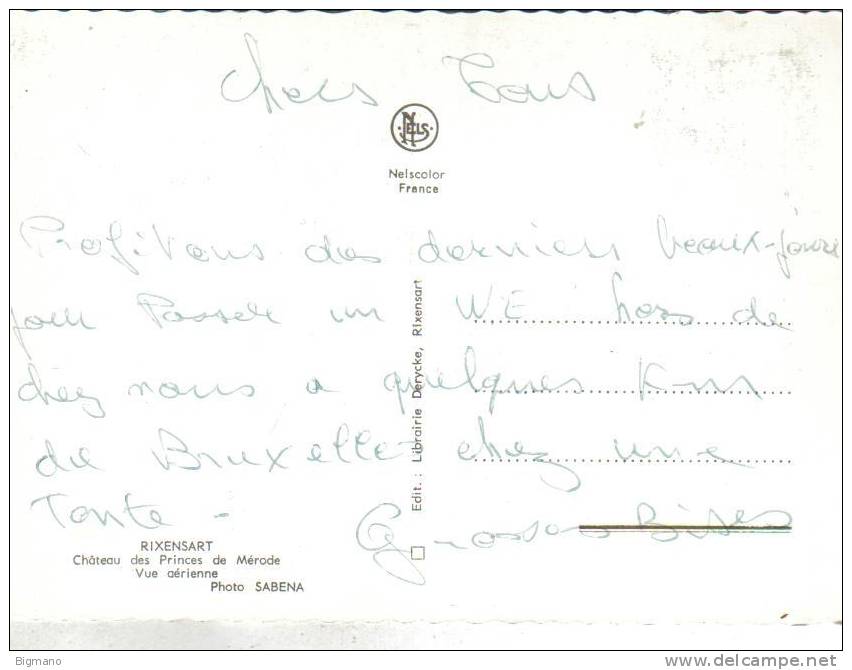 Chers Tous
NELS
Nelscolor
France
Profitons des derniers beaux-jours
pour Passer un W.E hors de
chez nous a quelques Km
de Bruxelles chez une
Tante -
Grosses Bises
Edit. : Librairie Derycke, Rixensart
RIXENSART
Château des Princes de Mérode
Vue aérienne
Photo SABENA
Bigmano
www.delcampe.net